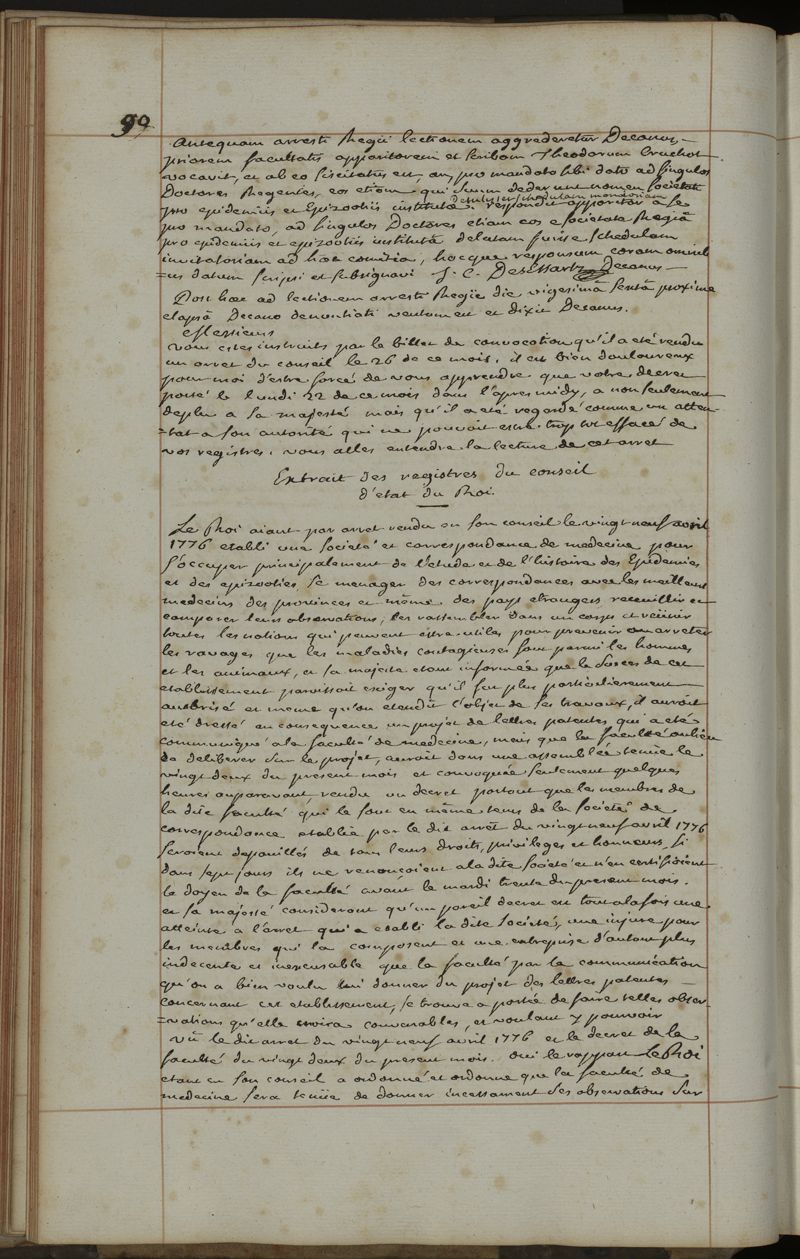 99
Antequam arresti Regii lectionem aggrederetur Decanus,
priorem facultatis apparitorem et scribam Theodorum Cruchot
vocavit, et ab eo siscitatus est, an pro mandato sibi dato ad singulos
Doctores Regentes, eos etiam qui suum dederunt nomen societati
pro epidemiis et Epizootiis institutæ detulisset schedulam monitoriam
respondit apparitor a se
pro mandato, ad singulos Doctores etiam eos e societate Regiâ
pro epidemiis et epizootiis institutâ delatam fuisse schedulam
invitatoriam ad hæc comitia, hocque responsum coram omnib
=us datum scripsi et subsignavi J. C. Desessartz Decanus
Post hæc ad lectionem arresti Regii die vigesimâ sextâ proxime
elapsâ Decano denuntiati ventum est et dixit Decanus.
Messieurs
Vous estes instruits par le billet de convocation qu'il a eté rendu
un arret du conseil le 26 de ce mois, il est bien douloureux
pour moi d'estre forcé de vous apprendre que votre decret
porté le lundi 22 de ce mois dans l'apres midy, a non seulement
deplu a sa majesté mais qu'il a eté regardé comme un atten
=tat a son autorité qui ne pouvoit estre trop tot effacé de
vos registres, vous alles entendre la lecture de cet arret
Extrait des registres du conseil
d'etat du Roi.
Le Roi aiant par arret rendu en son conseil le vingt neuf avril
1776 etabli une societé et correspondance de medecine pour
s'occuper principalement de l'etude et de l'histoire des Epidemies
et des epizooties, se menager des correspondances avec les meilleurs
medecins des provinces et même des pays etrangers recueillir et
comparer leurs observations, les rassembler dans un corps et réünir
toutes les notions qui peuvent être utiles pour prevenir ou arreter
les ravages que les maladies contagieuses font parmi les hommes
et les animaux, et sa majesté etant informée que le succes de cet
etablissement paroissoit exiger qu'il fut plus particulierement
autorisé et meme qu'on etendit l'objet de ses travaux, il auroit
eté dressé en consequence un projet de lettres patentes qui a eté
communiqué a la faculté de medecine, mais que la faculté au lieu
de deliberer sur le projet, auroit dans une assemblée tenüe le
vingt deux du present mois et convoquée seulement quelques
heures auparavant, rendu un decret portant que les membres de
la dite faculté qui le sont en même tems de la Societé de
correspondance etablie par le dit arrêt du vingt neuf avril 1776
seroient depouillés de tous leurs droits, privileges et honneurs, si
dans sept jours ils ne renonçoient a la dite societé et n'en certifioient
le doyen de la faculté avant le mardi trente du present mois.
et sa majesté considerant qu'un pareil decret est tout a la fois une
atteinte a l'arret qui a etabli la dite societé, une injure pour
les membres qui la composent et une entreprise d'autant plus
indecente et inexcusable que la faculté par la communication
qu'on a bien voulu lui donner du projet des lettres patentes
concernant cet etablissement, se trouve a portée de faire telles obser
=vations qu'elle croira convenables, et voulant y pourvoir
Vû le dit arret du vingt neuf avril 1776 et le decret de la
faculté du vingt deux du present mois. Oui le rapport Le Roi
etant en son conseil a ordonné et ordonne que la faculté de
medecine sera tenüe de donner incessament ses observations sur